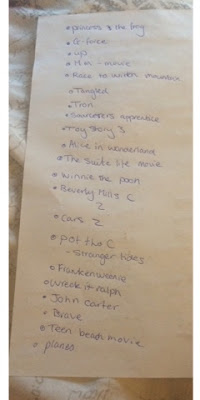 princess & the frog
G-force
up
Hm - movie
Race to witch mountain
Tangled
Tron
Sourcerers apprentice
Toy Story 3
Alice in wonderland
The Suite life movie
Winnie the pooh
Beverly Hills C
2
Cars 2
POT the C
- Stranger tides
Frankenweenie
wreck it ralph
John Carter
Brave
Teen beach movie
planes